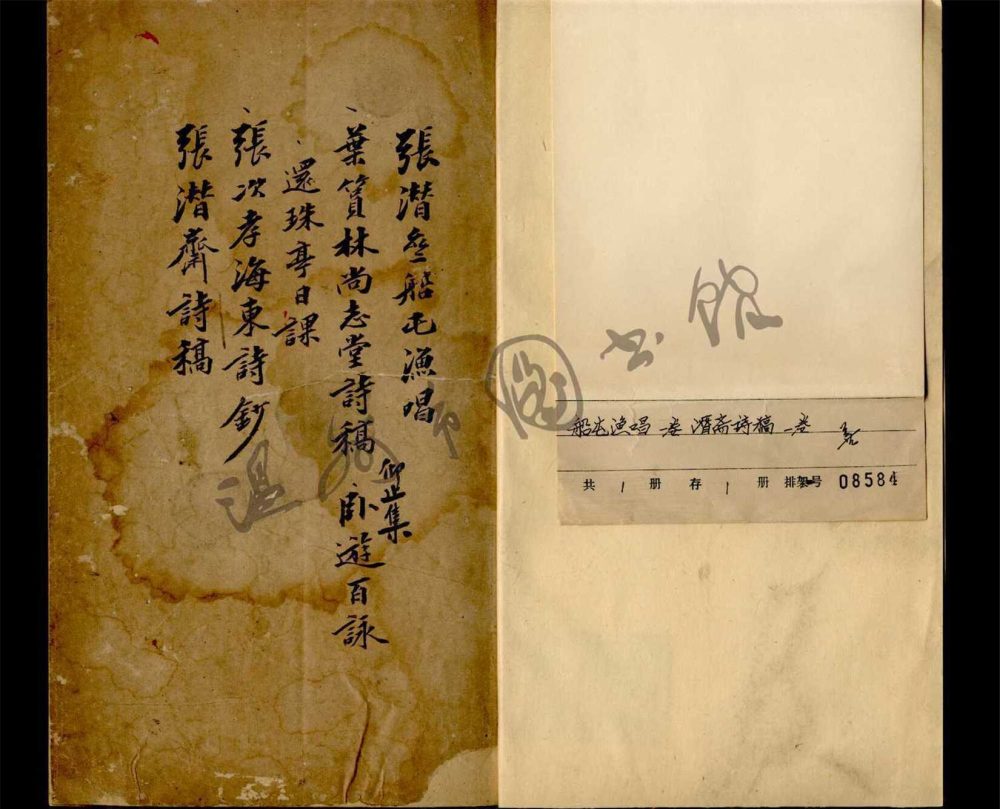 張潛叁船屯漁唱
葉篔林尚志堂詩稿 仰止集 卧遊百詠
還珠亭日課
張次孝海東詩鈔
張潛齋詩稿
温州市圖书馆
船屯渔唱一卷 潛斋詩稿一卷
共 1 册 存 1 册 排架号 08584